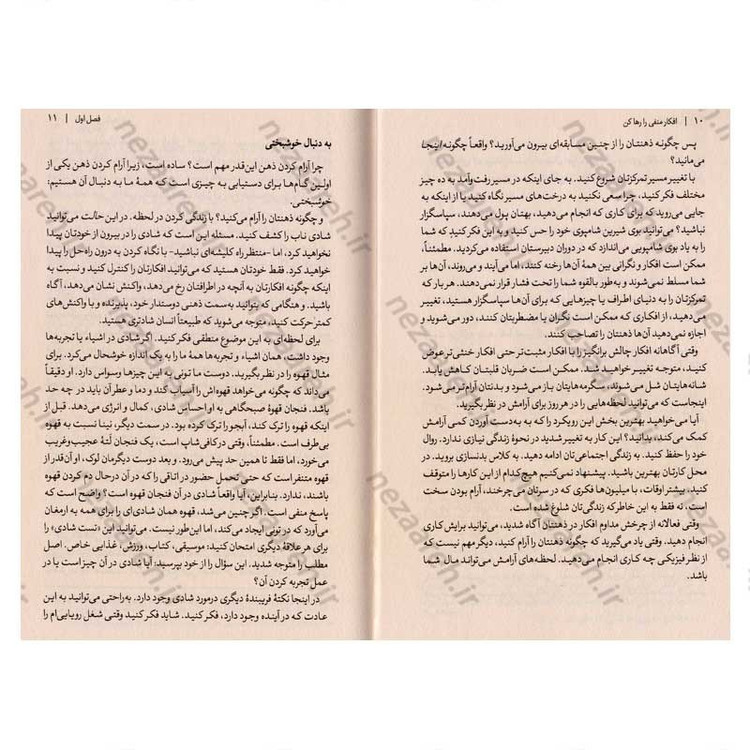 ۱۰ | افکار منفی را رها کن
پس چگونه ذهنتان را از چنین مسابقه‌ای بیرون می‌آورید؟ واقعاً چگونه اینجا
می‌مانید؟
با تغییر مسیر تمرکزتان شروع کنید. به جای اینکه در مسیر رفت‌وآمد به ده چیز
مختلف فکر کنید، چرا سعی نکنید به درخت‌های مسیر نگاه کنید یا از اینکه به
جایی می‌روید که برای کاری که انجام می‌دهید، بهتان پول می‌دهند، سپاسگزار
نباشید؟ می‌توانید بوی شیرین شامپوی خود را حس کنید و به این فکر کنید که شما
را به یاد بوی شامپویی می‌اندازد که در دوران دبیرستان استفاده می‌کردید. مطمئناً،
ممکن است افکار و نگرانی بین همهٔ آن‌ها رخنه کنند، اما می‌آیند و می‌روند، آن‌ها بر
شما مسلط نمی‌شوند و به‌طور بالقوه شما را تحت فشار قرار نمی‌دهند. هر بار که
تمرکزتان را به دنیای اطراف یا چیزهایی که برای آن‌ها سپاسگزار هستید، تغییر
می‌دهید، از افکاری که ممکن است نگران یا مضطربتان کنند، دور می‌شوید و
اجازه نمی‌دهید آن‌ها ذهنتان را تصاحب کنند.
وقتی آگاهانه افکار چالش برانگیز را با افکار مثبت‌تر حتی افکار خنثی‌تر عوض
کنید، متوجه تغییر خواهید شد. ممکن است ضربان قلبتان کاهش یابد.
شانه‌هایتان شل می‌شوند، سگرمه‌هایتان باز می‌شود و بدنتان آرام‌تر می‌شود.
اینجاست که می‌توانید لحظه‌هایی را در هر روز برای آرامش در نظر بگیرید.
آیا می‌خواهید بهترین بخش این رویکرد را که به به‌دست آوردن کمی آرامش
کمک می‌کند، بدانید؟ این کار به تغییر شدید در نحوهٔ زندگی نیازی ندارد. روال
خود را حفظ کنید. به زندگی اجتماعی‌تان ادامه دهید. به کلاس بدنسازی بروید. در
محل کارتان بهترین باشید. پیشنهاد نمی‌کنیم هیچ‌کدام از این کارها را متوقف
کنید. بیشتر اوقات، با میلیون‌ها فکری که در سرتان می‌چرخند، آرام بودن سخت
است، نه فقط به این خاطر که زندگی‌تان شلوغ شده است.
وقتی فعالانه از چرخش مداوم افکار در ذهنتان آگاه شدید، می‌توانید برایش کاری
انجام دهید. وقتی یاد می‌گیرید که چگونه ذهنتان را آرام کنید، دیگر مهم نیست که
از نظر فیزیکی چه کاری انجام می‌دهید. لحظه‌های آرامش می‌تواند مال شما
باشد.
فصل اول | ۱۱
به دنبال خوشبختی
چرا آرام کردن ذهن این‌قدر مهم است؟ ساده است، زیرا آرام کردن ذهن یکی از
اولین گام‌ها برای دستیابی به چیزی است که همهٔ ما به دنبال آن هستیم؛
خوشبختی.
و چگونه ذهنتان را آرام می‌کنید؟ با زندگی کردن در لحظه. در این حالت می‌توانید
شادی ناب را کشف کنید. مسئله این است که شادی را در بیرون از خودتان پیدا
نخواهید کرد، اما -منتظر راه کلیشه‌ای نباشید- با نگاه کردن به درون راه‌حل را پیدا
خواهید کرد. فقط خودتان هستید که می‌توانید افکارتان را کنترل کنید و نسبت به
اینکه چگونه افکارتان به آنچه در اطرافتان رخ می‌دهد، واکنش نشان می‌دهد، آگاه
باشید. و هنگامی که بتوانید به‌سمت ذهنی دوستدار خود، پذیرنده و با واکنش‌های
کمتر حرکت کنید، متوجه می‌شوید که طبیعتاً انسان شادتری هستید.
برای لحظه‌ای به این موضوع منطقی فکر کنید. اگر شادی در اشیاء یا تجربه‌ها
وجود داشت، همان اشیاء و تجربه‌ها همهٔ ما را به یک اندازه خوشحال می‌کرد. برای
مثال قهوه را در نظر بگیرید. دوست ما تونی به این چیزها وسواس دارد. او دقیقاً
می‌داند که چگونه می‌خواهد قهوه‌اش را آسیاب کند و دما و عطر آن باید در چه حد
باشد. فنجان قهوهٔ صبحگاهی به او احساس شادی، کمال و انرژی می‌دهد. قبل از
اینکه قهوه را ترک کند، آبجو را ترک کرده بود. در سمت دیگر، نینا نسبت به قهوه
بی‌طرف است. مطمئناً، وقتی در کافی‌شاپ است، یک فنجان لتهٔ عجیب‌وغریب
می‌خورد، اما فقط تا همین حد پیش می‌رود. و بعد دوست دیگرمان لوک، او آن‌قدر از
قهوه متنفر است که حتی تحمل حضور در اتاقی را که در آن درحال دم کردن قهوه
باشند، ندارد. بنابراین، آیا واقعاً شادی در آن فنجان قهوه است؟ واضح است که
پاسخ منفی است. اگر چنین می‌شد، قهوه همان شادی‌ای را برای همه به ارمغان
می‌آورد که در تونی ایجاد می‌کند، اما این‌طور نیست. می‌توانید این «تست شادی» را
برای هر علاقهٔ دیگری امتحان کنید: موسیقی، کتاب، ورزش، غذایی خاص. اصل
مطلب را متوجه شدید. این سؤال را از خود بپرسید: آیا شادی در آن چیز است یا در
عمل تجربه کردن آن؟
در اینجا نکتهٔ فریبندهٔ دیگری درمورد شادی وجود دارد. به‌راحتی می‌توانید به این
عادت که در آینده وجود دارد، فکر کنید. شاید فکر کنید وقتی شغل رویایی‌ام را
nezaareh.ir